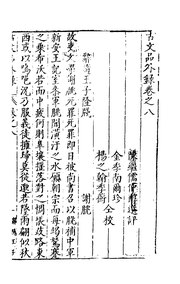 古文品外錄卷之八
陳繼儒仲醇選評
全校
辭隨王子隆牋
謝朓
故吏文學謝朓死罪死罪即日被尚書召以朓補中軍
新安王記室參軍朓聞潢汙之水願朝宗而每竭駑蹇
之乗希沃若而中疲何則皋壤搖落對之惆悵歧路東
西或以嗚唈况乃服義徒擁歸志莫從邈若墜雨翩似秋